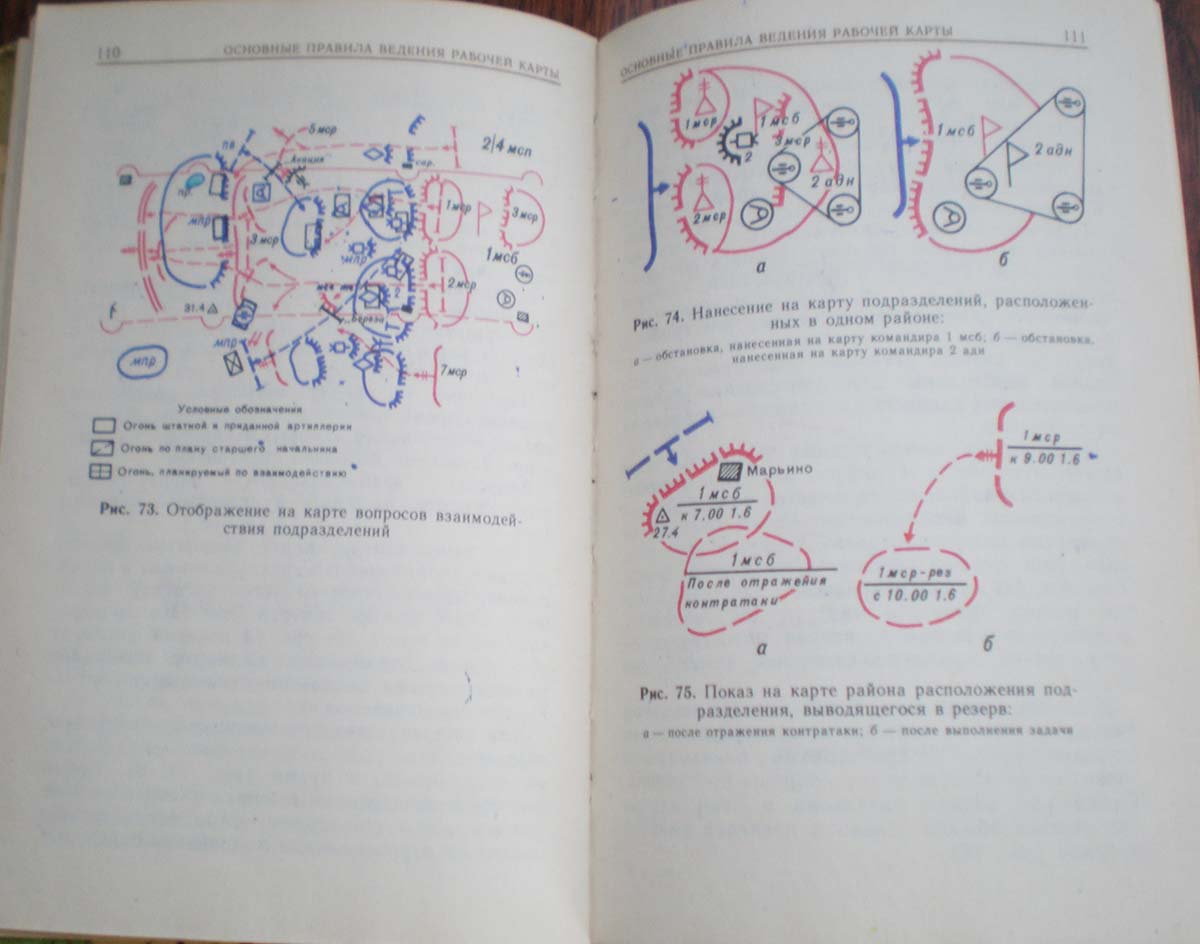 110 ОСНОВНЫЕ ПРАВИЛА ВЕДЕНИЯ РАБОЧЕЙ КАРТЫ
5мср
2/4 мсп
пв
Акация
пр.
1мср
3мср
мпр
3мср
мпр
1мсб
2
2мср
31.4
Береза
мпр
мпр
7мср
Условные обозначения
Огонь штатной и приданной артиллерии
Огонь по плану старшего начальника
Огонь, планируемый по взаимодействию
Рис. 73. Отображение на карте вопросов взаимодей-
ствия подразделений
ОСНОВНЫЕ ПРАВИЛА ВЕДЕНИЯ РАБОЧЕЙ КАРТЫ 111
1мср
1мсб
3мср
2
2мср
2 адн
а
1мсб
2 адн
б
Рис. 74. Нанесение на карту подразделений, расположен-
ных в одном районе:
а — обстановка, нанесенная на карту командира 1 мсб; б — обстановка,
нанесенная на карту командира 2 адн
Марьино
1мсб
к 7.00 1.6
27.4
1мсб
После отражения
контратаки
а
1мср
к 9.00 1.6
1мср-рез
с 10.00 1.6
б
Рис. 75. Показ на карте района расположения под-
разделения, выводящегося в резерв:
а — после отражения контратаки; б — после выполнения задачи